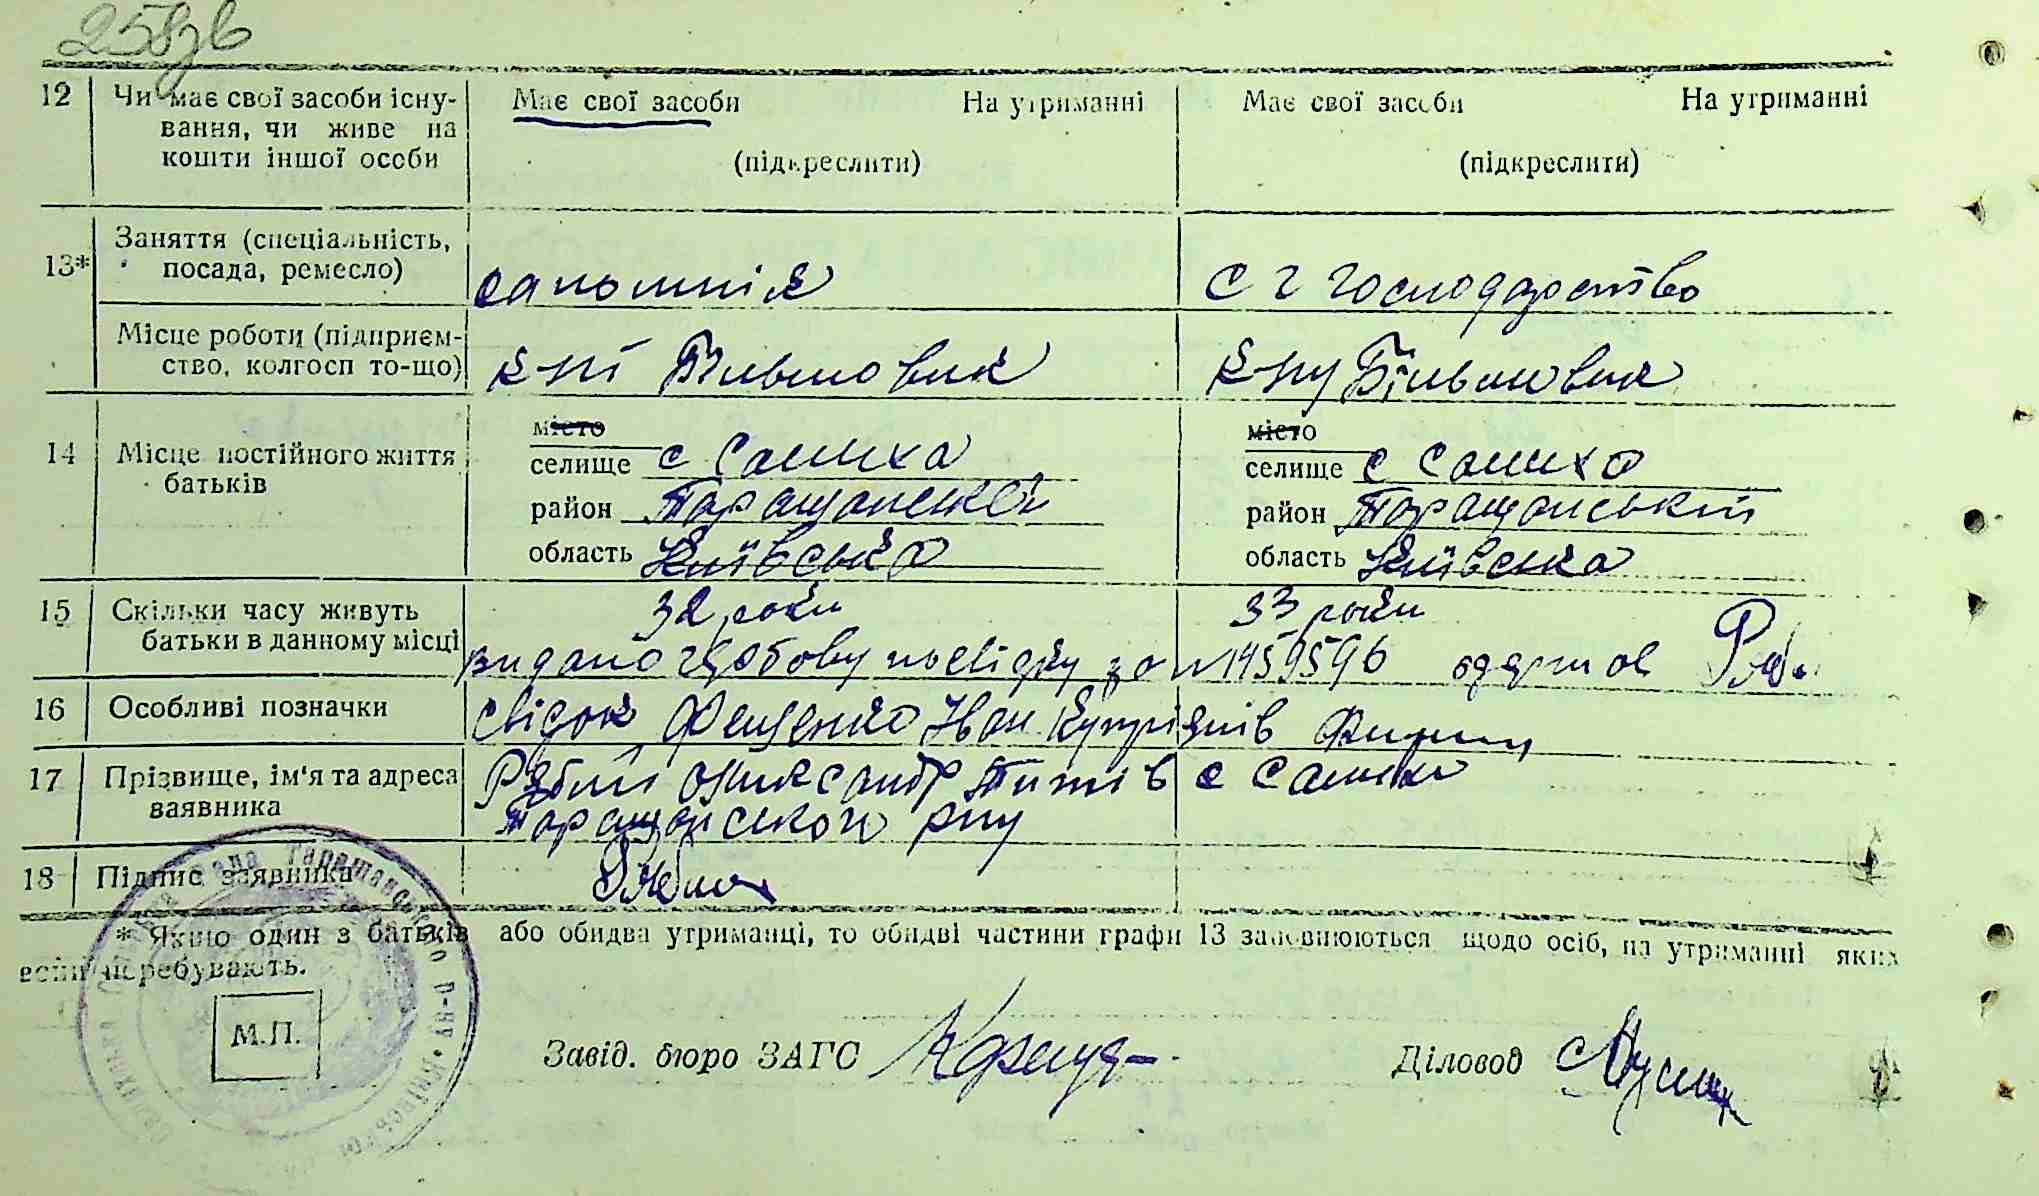 258зв
12 Чи має свої засоби існу- Має свої засоби На утриманні Має свої засоби На утриманні
вання, чи живе на
кошти іншої особи (підкреслити) (підкреслити)
Заняття (спеціальність,
13* посада, ремесло) с г господарство
Місце роботи (підприєм-
ство, колгосп то-що) к-пі Більшовик к-пу Більшовик
місто місто
14 Місце постійного життя селище с Салиха селище с Салиха
батьків район Таращанський район Таращанський
область Київська область Київська
15 Скільки часу живуть 32 роки 33 роки
батьки в данному місці видано посвідку за № 1459596 одержав Ряб.
16 Особливі позначки свідок Фещенко Іван
17 Прізвище, ім'я та адреса Рябий Олександр с Салиха
заявника Таращанського р-ну
18 Підпис заявника Рябий
* Якщо один з батьків або обидва утриманці, то обидві частини графи 13 заповнюються щодо осіб, на утриманні яких
вони перебувають.
М.П. Завід. бюро ЗАГС Діловод
Рада Таращанського р-ну Київської